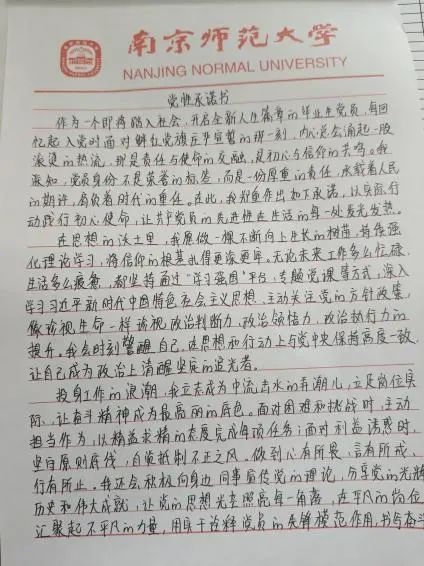 南京师范大学
NANJING NORMAL UNIVERSITY
党性承诺书
作为一个即将踏入社会,开启全新人生篇章的毕业生党员,每回
忆起入党时面对鲜红党旗庄严宣誓的那一刻,内心总会涌起一股
滚烫的热流,那是责任与使命的交融,是初心与信仰的共鸣。我
深知,党员身份不是荣誉的标签,而是一份厚重的责任,承载着人民
的期许,肩负着时代的重任。在此,我郑重作出如下承诺,以实际行
动践行初心使命,让共产党员的先进性在生活的每一处发光发热。
在思想的沃土里,我愿做一棵不断向上生长的树苗,持续强
化理论学习,将信仰的根茎扎得更深更牢。无论未来工作多么忙碌、
生活多么疲惫,都坚持通过“学习强国”平台,专题党课等方式,深入
学习习近平新时代中国特色社会主义思想,主动关注党的方针政策,
像珍视生命一样珍视政治判断力、政治领悟力、政治执行力的
提升。我会时刻警醒自己,在思想和行动上与党中央保持高度一致,
让自己成为政治上清醒坚定的追光者。
投身工作的浪潮,我立志成为中流击水的有潮儿,立足岗位实
际,让奋斗精神成为最亮丽的底色。面对困难和挑战时,主动
担当作为,以精益求精的态度完成每项任务;面对利益诱惑时,
坚守原则底线,自觉抵制不正之风。做到心有所畏、言有所戒、
行有所止。我还会积极向身边同事宣传党的理论,分享党的光辉
历史和伟大成就,让党的思想光芒照亮每一角落,在平凡的岗位
汇聚起不平凡的力量,用实干诠释党员的先锋模范作用,书写奋斗